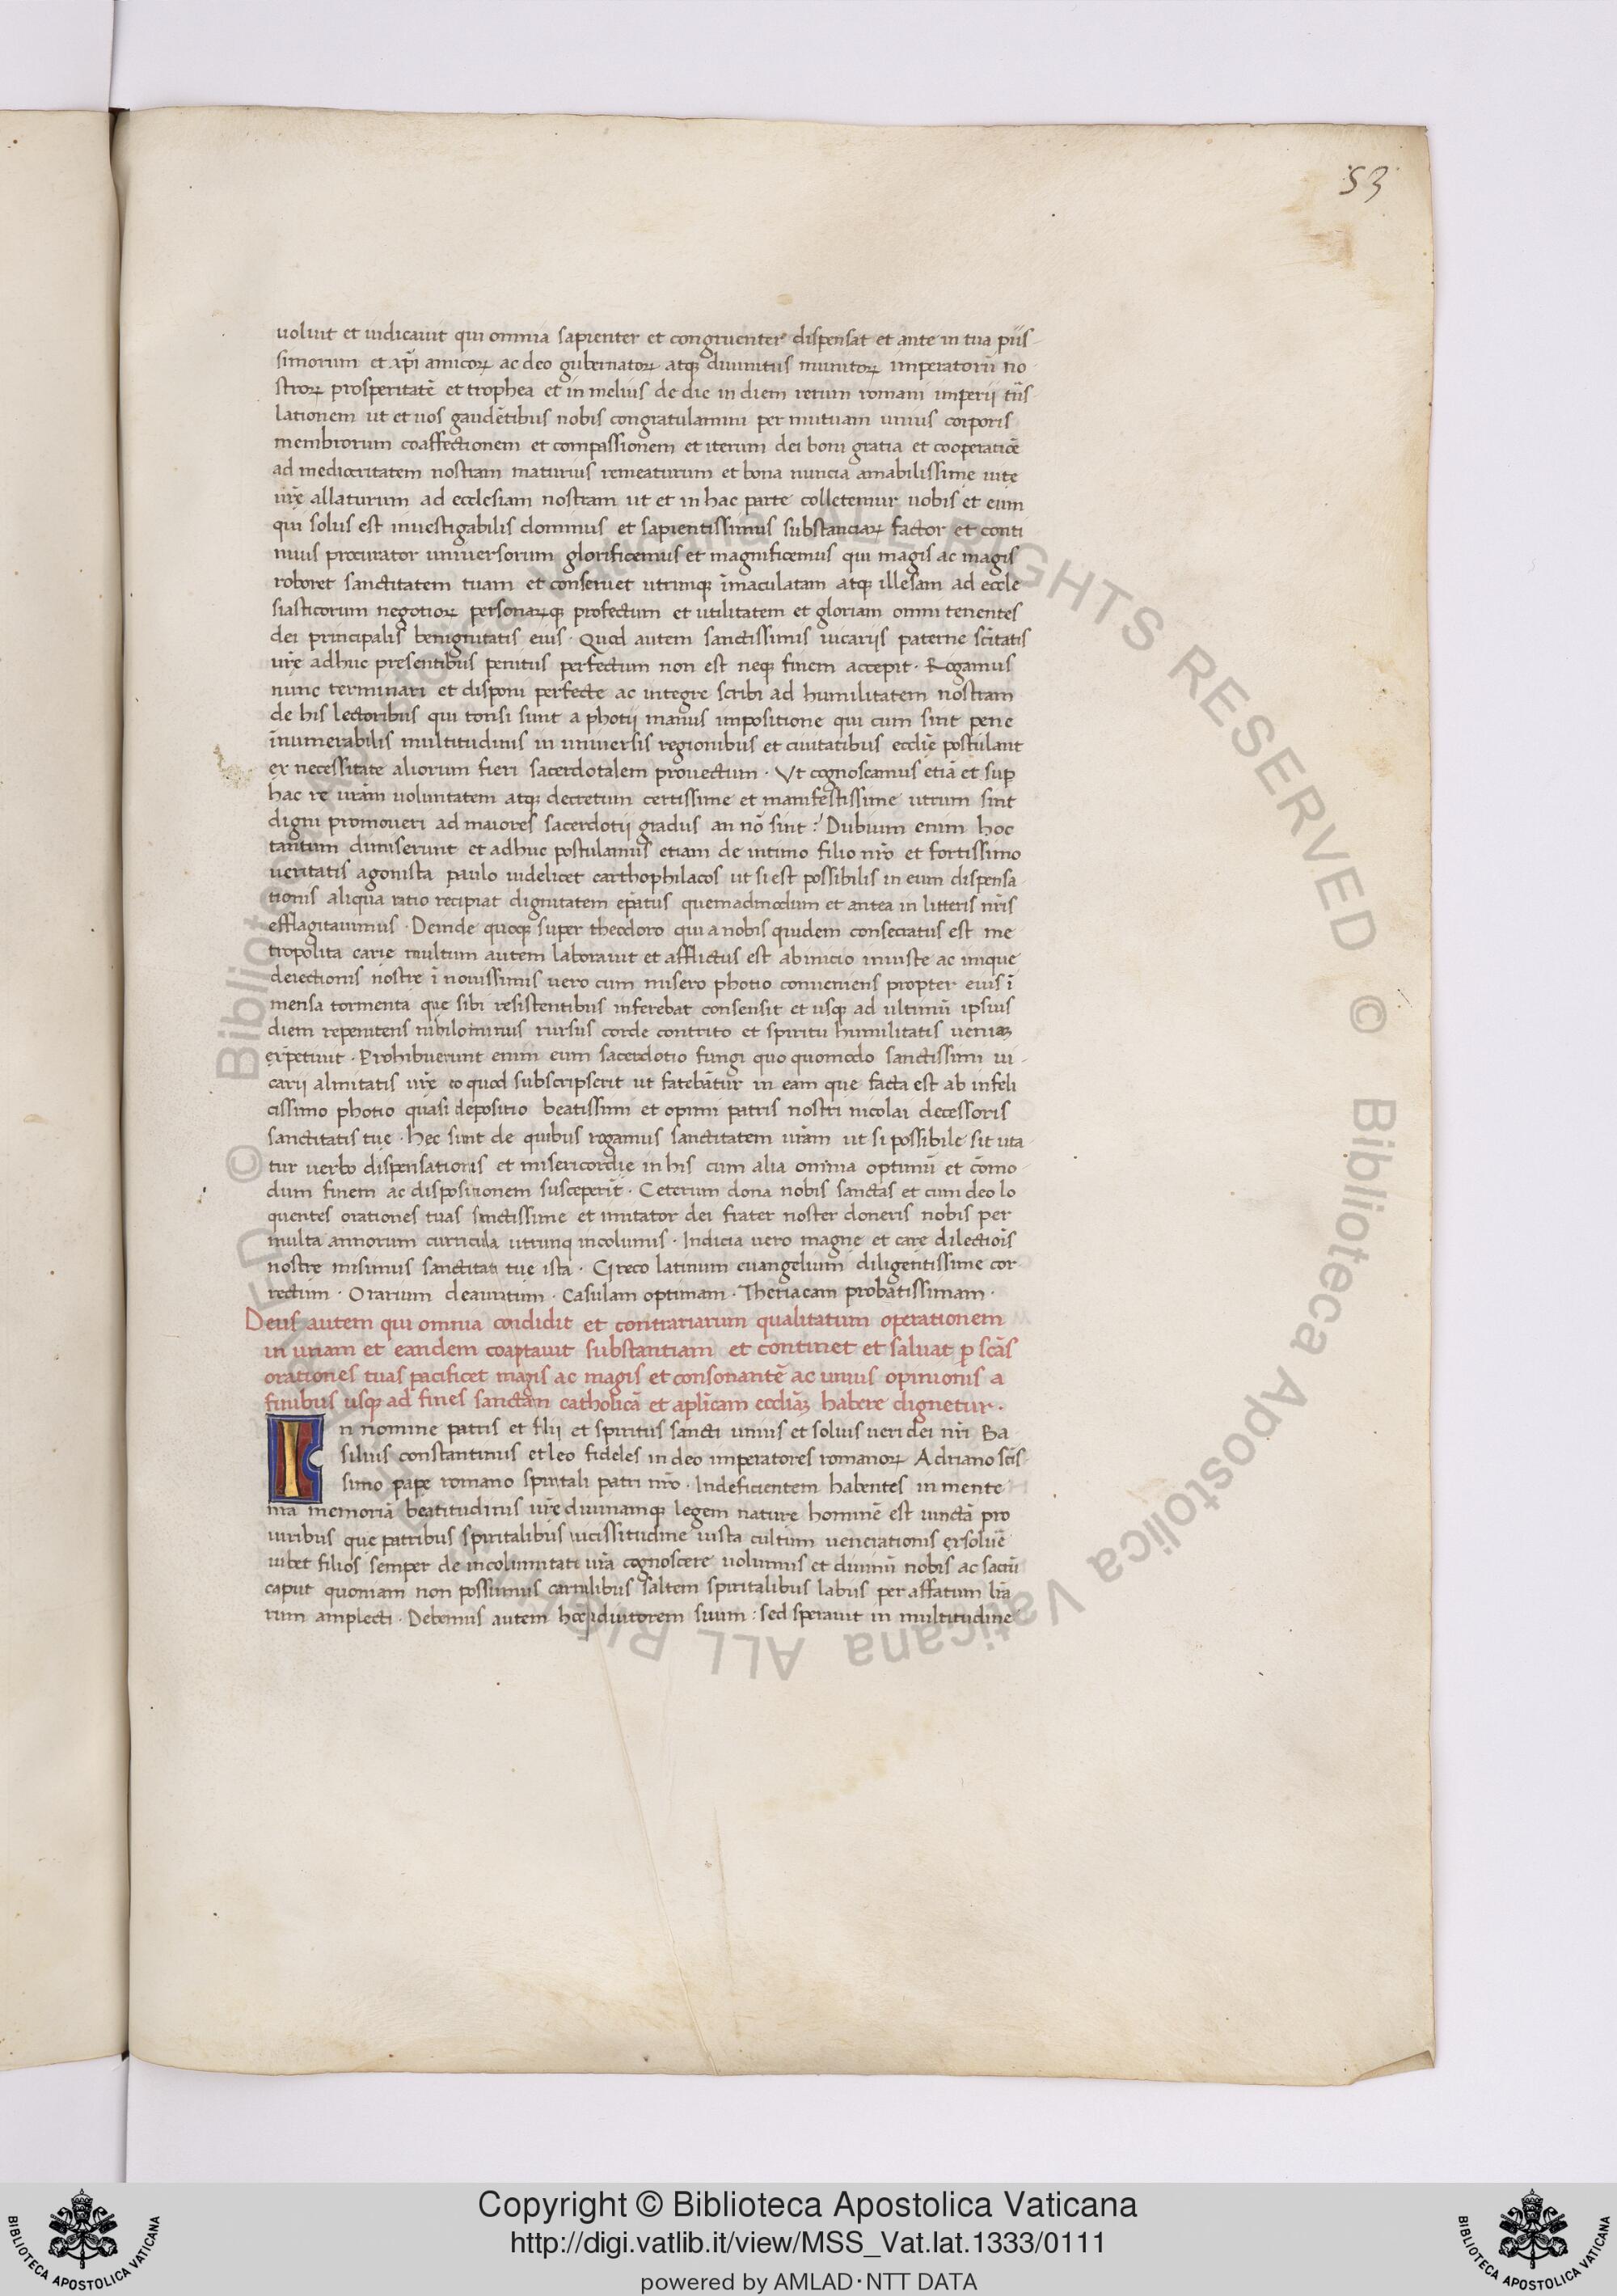 53
uoluit et iudicauit qui omnia sapienter et congruenter dispensat et ante in tua piis-
simorum et xp̃i amicoꝝ ac deo gubernatoꝝ atqꝫ diuinitus munitoꝝ imperatorũ no
stroꝝ prosperitatẽ et trophea et in melius de die in diem rerum romani imperij trãs-
lationem ut et uos gaudẽtibus nobis congratulamini per mutuam unius corporis
membrorum coaffectionem et compassionem et iterum dei boni gratia et cooperatiõe
ad mediocritatem nostram maturius remeaturum et bona nuncia amabilissime uite
ur̃ę allaturum ad ecclesiam nostram ut et in hac parte colletemur uobis et eum
qui solus est inuestigabilis dominus et sapientissimus substanciaꝝ factor et conti
nuus procurator uniuersorum glorificemus et magnificemus qui magis ac magis
roboret sanctitatem tuam et conseruet utrunqꝫ ĩmaculatam atqꝫ illesam ad eccle
siasticorum negotioꝝ personaꝝqꝫ profectum et utilitatem et gloriam omni tenentes
dei principalis benignitatis eius · Quod autem sanctissimis uicarijs paterne scĩtatis
ur̃ę adhuc presentibus penitus perfectum non est neqꝫ finem accepit · Rogamus
nunc terminari et disponi perfecte ac integre scribi ad humilitatem nostram
de his lectoribus qui tonsi sunt a photij manus impositione qui cum sint pene
ĩnumerabilis multitudinis in uniuersis regionibus et ciuitatibus ecclĩe postulant
ex necessitate aliorum fieri sacerdotalem prouectum · Vt cognoscamus etiã et sup̱
hac re ur̃am uoluntatem atqꝫ decretum certissime et manifestissime utrum sint
digni promoueri ad maiores sacerdotij gradus an nõ sint :' Dubium enim hoc
tantum dimiserunt et adhuc postulamus etiam de intimo filio nr̃o et fortissimo
ueritatis agonista paulo uidelicet carthophilacos ut si est possibilis in eum dispensa
tionis aliqua ratio recipiat dignitatem ep̃atus quemadmodum et antea in litteris nr̃is
efflagitauimus · Deinde quoqꝫ super theodoro qui a nobis quidem consecratus est me
tropolita carie multum autem laborauit et afflictus est ab inicio iniuste ac inique
deiectionis nostre ĩ nouissimis uero cum misero photio conueniens propter eius ĩ
mensa tormenta que sibi resistentibus inferebat consensit et usqꝫ ad ultimũ ipsius
diem repenitens nihilominus rursus corde contrito et spiritu humilitatis ueniaꝫ
expetiuit · Prohibuerunt enim eum sacerdotio fungi quo quomodo sanctissimi ui-
carij almitatis ur̃ę eo quod subscripserit ut fatebãtur in eam que facta est ab infeli
cissimo photio quasi depositio beatissimi et opimi patris nostri nicolai decessoris
sanctitatis tue · hec sunt de quibus rogamus sanctitatem ur̃am ut si possibile sit uta
tur uerbo dispensationis et misericordie in his cum alia omnia optimũ et cõmo
dum finem ac dispositionem susceperĩt · Ceterum dona nobis sanctas et cum deo lo
quentes orationes tuas sanctissime et imitator dei frater noster doneris nobis per
multa annorum curricula utrunq incolumis · Indicia uero magne et care dilectiõis
nostre misimus sanctitati tue ista · Greco latinum euangelium diligentissime cor
rectum · Orarium deauratum · Casulam optimam · Theriacam probatissimam ·
Deus autem qui omnia condidit et contrariarum qualitatum operationem
in unam et eandem coaptauit substantiam et continet et saluat p̱ scãs
orationes tuas pacificet magis ac magis et consonantẽ ac unius opinionis a
finibus usqꝫ ad fines sanctam catholicã et ap̃licam eccliãꝫ habere dignetur ·
In nomine patris et filij et spiritus sancti unius et solius ueri dei nr̃i Ba
silius constantinus et leo fideles in deo imperatores romanoꝝ Adriano scĩs
simo pape romano spiritali patri nr̃o · Indeficientem habentes in mente
nr̃a memoriã beatitudinis ur̃ę diuinamqꝫ legem nature hominẽ est iunctã pro
uiribus que patribus spiritalibus uicissitudine iusta cultum uenerationis exsoluẽ
iubet filios semper de incolumitati ur̃a cognoscere uolumus et diuinũ nobis ac sacrũ
caput quoniam non possumus carnalibus saltem spiritalibus labiis per affatum lr̃a
rum amplecti · Debemus autem adiutorem suum : sed sperauit in multitudine
Copyright © Biblioteca Apostolica Vaticana
http://digi.vatlib.it/view/MSS_Vat.lat.1333/0111
powered by AMLAD·NTT DATA
BIBLIOTECA APOSTOLICA VATICANA
BIBLIOTECA APOSTOLICA VATICANA
© Biblioteca Apostolica Vaticana ALL RIGHTS RESERVED © Biblioteca Apostolica Vaticana ALL RIGHTS RESERVED